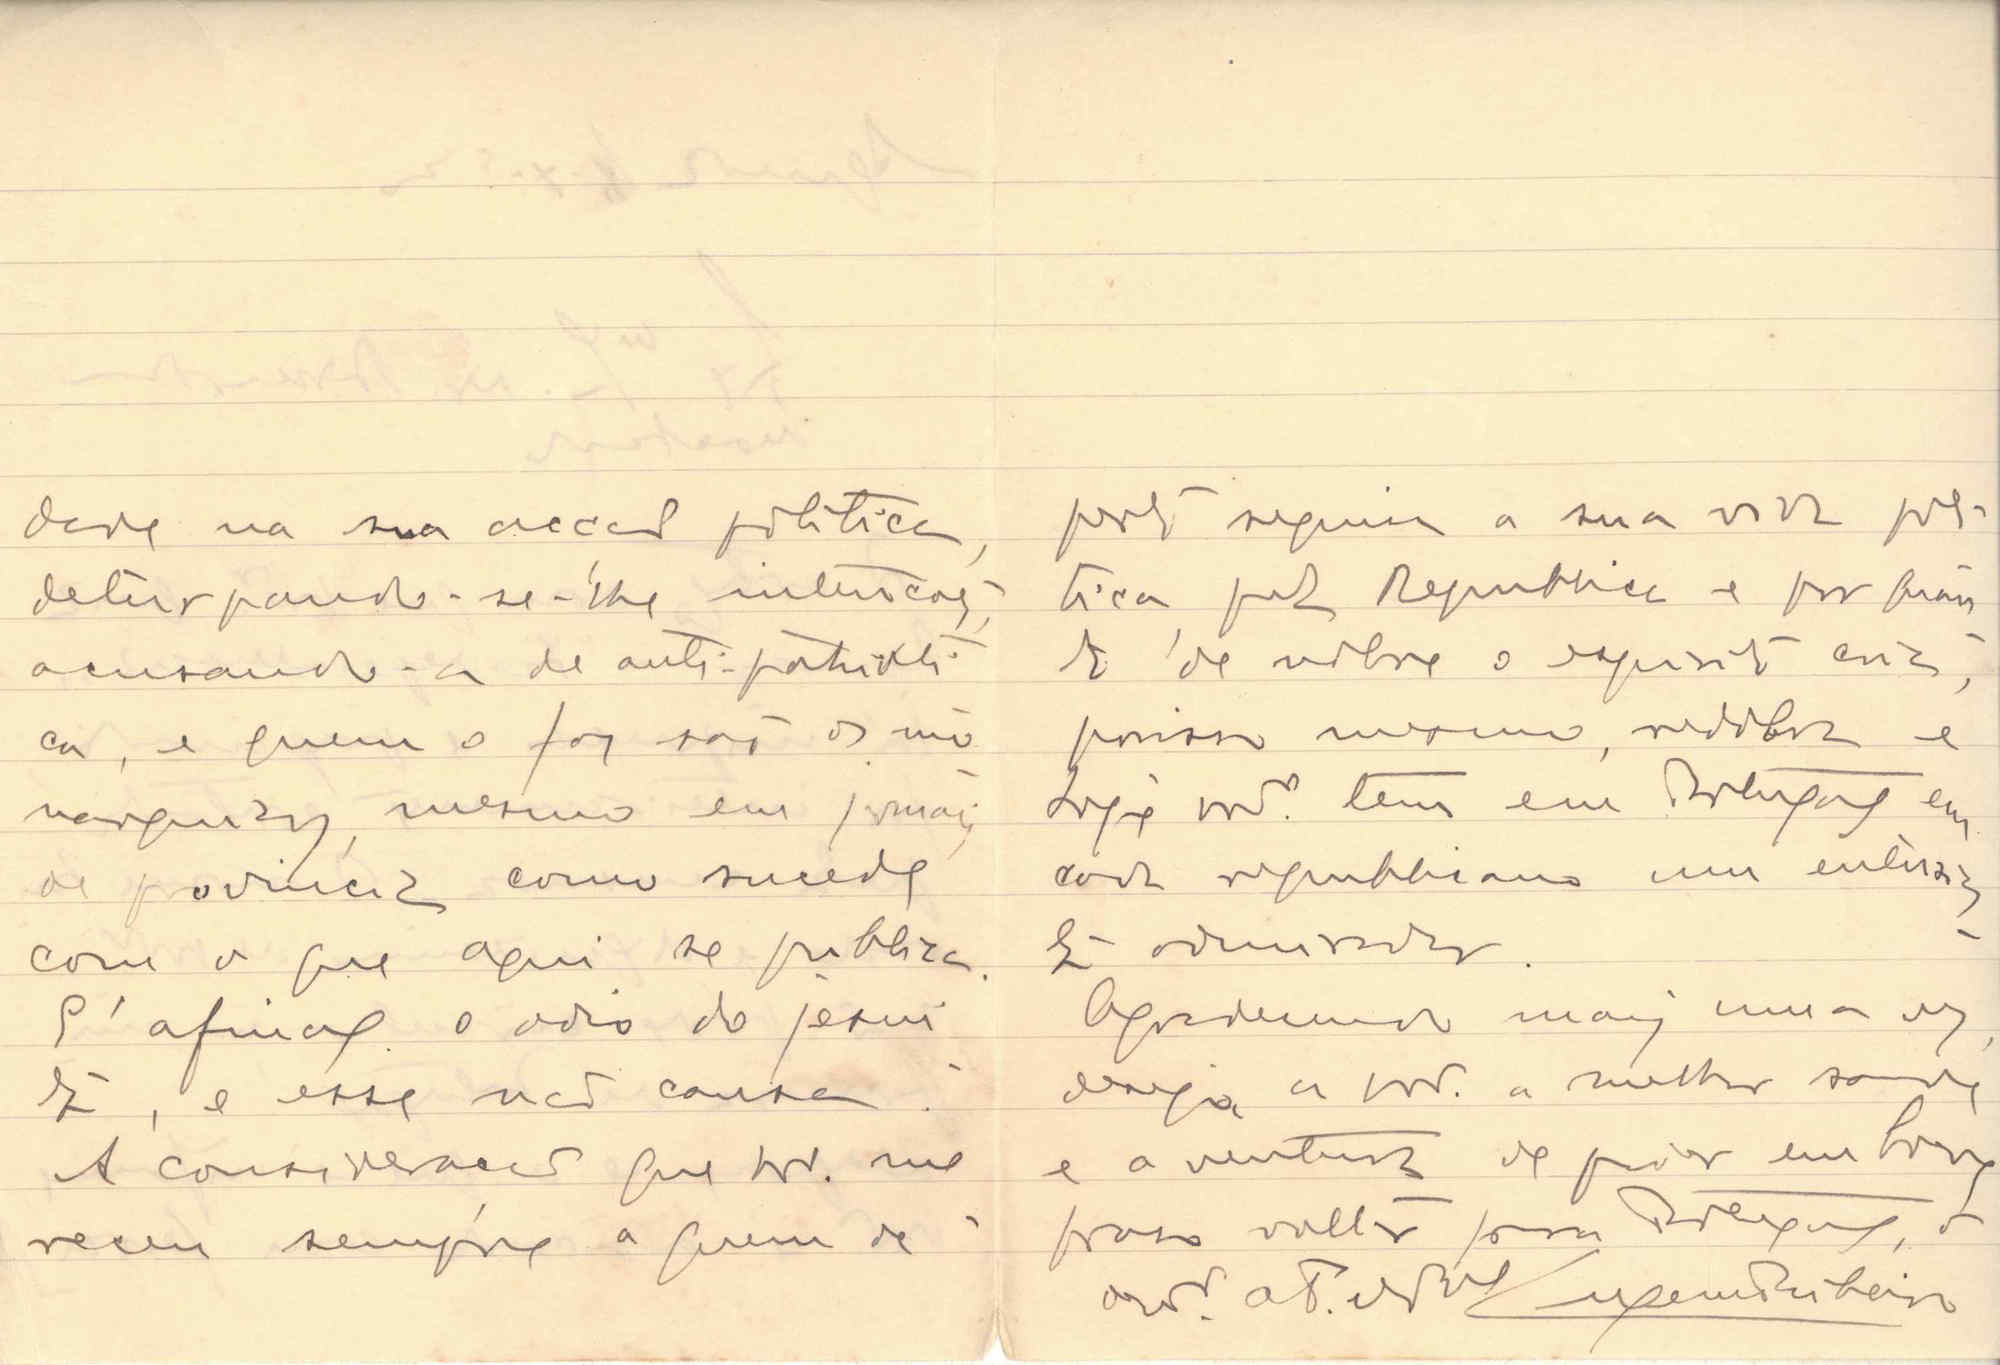 dade na sua acção politica,
deturpando-se-lhe intenções,
acusando-a de anti-patrioti
ca, e quem o faz são os mo
narquicos, mesmo em jornais
de provincia como sucede
com o que aqui se publica.
E' afinal o odio do jesui
ta, e esse não cansa.
A consideração que vos. me
receu sempre a quem de
perto seguiu a sua vida poli-
tica pela Republica e por
de nobre o espirito
porisso mesmo, redobra e
hoje vos. tem em Portugal em
cada republicano um entusias
ta admirador.
Agradecendo mais uma vez,
deseja a vos. a melhor saude
e a ventura de poder em breve
praso voltar para Portugal, o
Eugenio Ribeiro